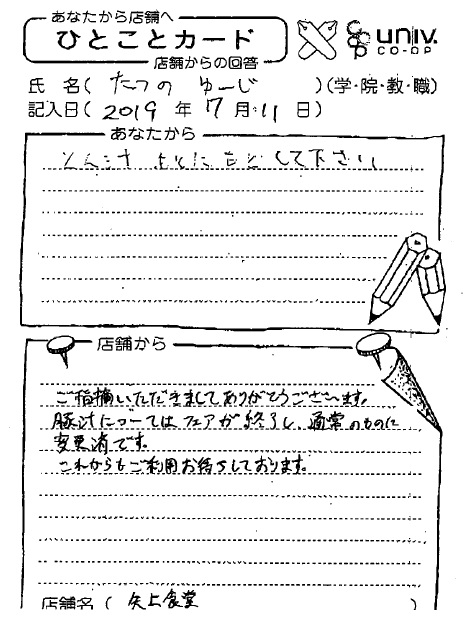 あなたから店舗へ
ひとことカード
店舗からの回答
univ.
CO-OP
氏 名( たつの ゆーじ )(学・院・教・職)
記入日( 2019 年 7 月 11 日)
あなたから
とん汁 もとにもどして下さい
店舗から
ご指摘いただきましてありがとうございます。
豚汁についてはフェアが終了し、通常のものに
変更済です。
これからもご利用お待ちしております。
店舗名( 矢上食堂 )